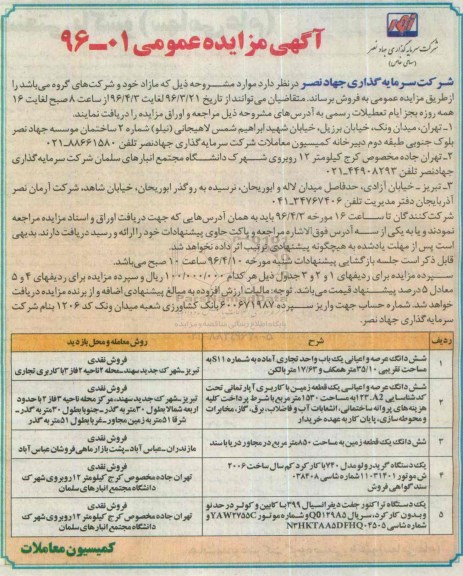 شرکت سرمایه گذاری جهاد نصر
(سهامی خاص)
آگهی مزایده عمومی ۰۱-۹۶
شرکت سرمایه گذاری جهاد نصر در نظر دارد موارد مشروحه ذیل که مازاد خود و شرکت‌های گروه می‌باشد را
از طریق مزایده عمومی به فروش برساند. متقاضیان می‌توانند از تاریخ ۹۶/۳/۲۱ لغایت ۹۶/۴/۳ از ساعت ۸ صبح لغایت ۱۶
همه روزه بجز ایام تعطیلات رسمی به آدرس‌های مشروحه ذیل مراجعه و اوراق مزایده را دریافت نمایند.
۱- تهران، میدان ونک، خیابان برزیل، خیابان شهید ابراهیم شمس لاهیجانی (نیلو) شماره ۲ ساختمان موسسه جهاد نصر
بلوک جنوبی طبقه دوم دبیرخانه کمیسیون معاملات شرکت سرمایه گذاری جهاد نصر تلفن ۸۸۶۶۱۵۸۰-۰۲۱
۲- تهران جاده مخصوص کرج کیلومتر ۱۲ روبروی شهرک دانشگاه مجتمع انبارهای سلمان شرکت سرمایه گذاری
جهاد نصر تلفن ۴۴۹۰۸۲۹۳-۰۲۱
۳- تبریز - خیابان آزادی، حدفاصل میدان لاله و ابوریحان، نرسیده به روگذر ابوریحان، خیابان شاهد، شرکت آرمان نصر
آذربایجان دفتر مدیریت تلفن ۳۴۷۶۷۴۰۶-۰۴۱
شرکت کنندگان تا ساعت ۱۶ مورخه ۹۶/۴/۳ باید به همان آدرس‌هایی که جهت دریافت اوراق و اسناد مزایده مراجعه
نمودند و یا به یکی از سه آدرس فوق الاشاره مراجعه و پاکت حاوی پیشنهادات خود را ارائه و رسید دریافت دارند. بدیهی
است پس از مهلت یادشده به هیچگونه پیشنهادی ترتیب اثر داده نخواهد شد.
قابل ذکر است جلسه بازگشایی پیشنهادات شنبه مورخه ۹۶/۴/۱۰ ساعت ۱۰ صبح می‌باشد.
سپرده مزایده برای ردیفهای ۱ و ۲ و ۳ جدول ذیل هر کدام ۱۰۰/۰۰۰/۰۰۰ ریال و سپرده مزایده برای ردیفهای ۴ و ۵
معادل ۵ درصد پیشنهاد قیمت می‌باشد. توجه: مالیات ارزش افزوده به مبالغ پیشنهادی اضافه و از برنده مزایده دریافت
خواهد شد. شماره حساب جهت واریز سپرده ۶۰۰۶۷۱۹۸۷ بانک کشاورزی شعبه میدان ونک کد ۱۳۰۶ بنام شرکت
سرمایه گذاری جهاد نصر.
ردیف شرح روش معامله و محل بازدید
۱ شش دانگ عرصه و اعیانی یک باب واحد تجاری آماده به شماره S11 به
مساحت تقریبی ۳۵/۱۰ متر همکف و ۱۷/۶۳ متر بالکن
فروش نقدی
تبریز - شهرک جدید سهند - محله ۲ ناحیه ۲ فاز ۳ با کاربری تجاری
۲ شش دانگ عرصه و اعیانی یک قطعه زمین با کاربری آپارتمانی تحت
کد شناسایی ۱۲۳.A۲ به مساحت ۱۵۳۰ متر مربع با شرط پرداخت کلیه
هزینه‌های پروانه ساختمانی، انشعابات آب و فاضلاب، برق، گاز، مخابرات
و محوطه سازی، پایان کار به عهده خریدار
فروش نقدی
تبریز - شهرک جدید سهند، مرکز محله ناحیه ۳ فاز ۲ با حدود
اربعه شمالاً بطول ۳۰ متر به گذر - جنوباً بطول ۳۰ متر به گذر -
شرقاً ۵۱ متر به زمین مجاور - غرباً بطول ۵۱ متر به گذر
۳ شش دانگ یک قطعه زمین به مساحت ۸۵۰ متر مربع در مجاور دریا با سند
فروش نقدی
مازندران - عباس آباد - پشت بازار ماهی فروشان عباس آباد
۴ یک دستگاه گریدر ولو مدل ۷۴۰ با کارکرد کم سال ساخت ۲۰۰۶
ش موتور ۱۱۰۳۱۴۰۱ شماره شاسی ۰۳۸۴۰۸
سند گواهی فروش
فروش نقدی
تهران جاده مخصوص کرج کیلومتر ۱۲ روبروی شهرک
دانشگاه مجتمع انبارهای سلمان
۵ یک دستگاه تراکتور جفت دیفرانسیال ۳۹۹ با کابین و کولر در حد نو
و بدون کارکرد، سریال Q0129A5 و شماره موتور YAW2755C و
شماره شاسی N3HKTAA5DFHQ02505
فروش نقدی
تهران جاده مخصوص کرج کیلومتر ۱۲ روبروی شهرک
دانشگاه مجتمع انبارهای سلمان
کمیسیون معاملات